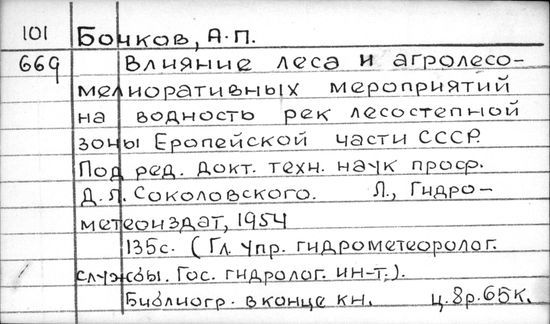 101 Бочков, А.П.
669 Влияние леса и агролесо-
мелиоративных мероприятий
на водность рек лесостепной
зоны Еропейской части СССР.
Под ред. докт. техн. наук проф.
Д.Л. Соколовского. Л., Гидро-
метеоиздат, 1954
135с. (Гл. упр. гидрометеоролог.
службы. Гос. гидролог. ин-т.).
Библиогр. в конце кн. ц. 8р. 65к.